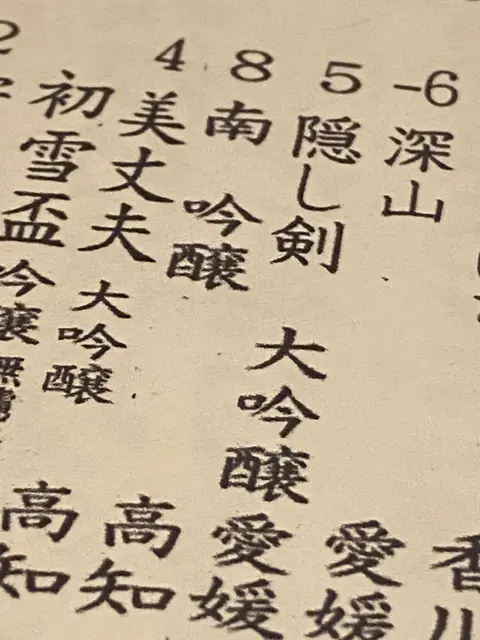 香川
-6 深山 愛媛
5 隠し剣 大吟醸 愛媛
8 南 吟醸 高知
4 美丈夫 大吟醸 高知
初雪盃 吟醸 無濾
2